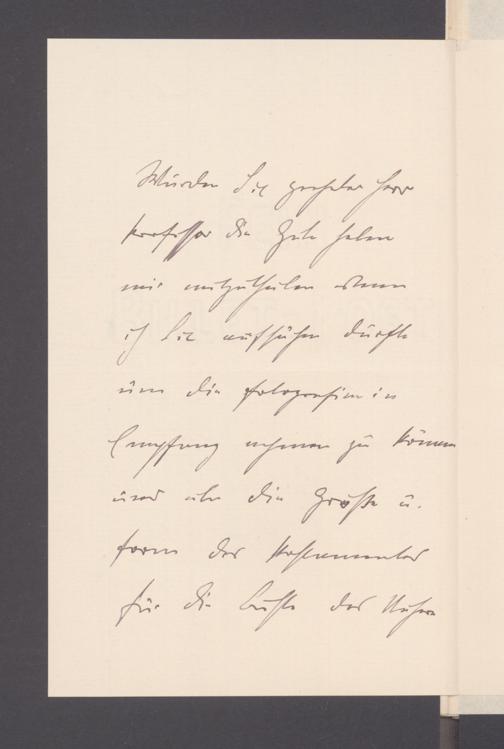 Würden Sie geehrter Herr
Professor die Güte haben
mir mitzutheilen wann
ich Sie aufsuchen dürfte
um die Fotografien in
Empfang nehmen zu können
und über die Größe u.
Form des Postamentes
für die Büste des